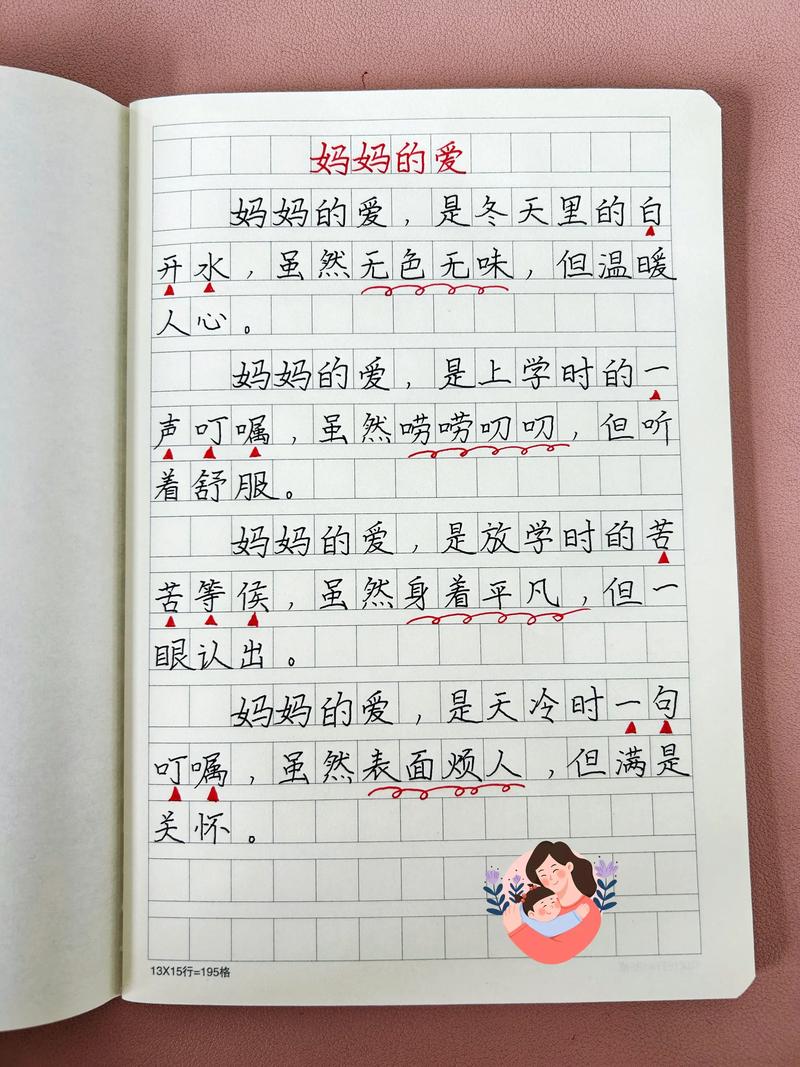 妈妈的爱
妈妈的爱，是冬天里的白
开水，虽然无色无味，但温暖
人心。
妈妈的爱，是上学时的一
声叮嘱，虽然唠唠叨叨，但听
着舒服。
妈妈的爱，是放学时的苦
苦等侯，虽然身着平凡，但一
眼认出。
妈妈的爱，是天冷时一句
叮嘱，虽然表面烦人，但满是
关怀。
13X15行=195格